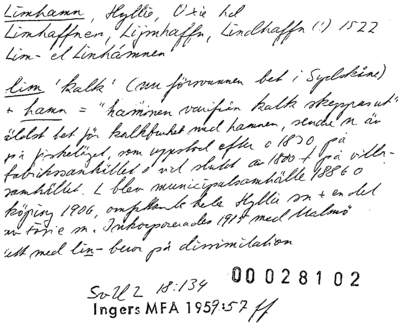 Limhamn, Hyllie, Oxie hd
Limhaffnen, Lijmhaffn, Lindhaffn (!) 1522
Lim- el Linhamnen
lim 'kalk' (nu försvunnen bet i Sydskåne)
+ hamn = "hamnen varifrån kalk skeppas ut"
äldst bet för kalkbruket med hamnen, senare n äv
på fiskeläget, som uppstod efter 1830, på
fabrikssamhället i slutet av 1800-t på villa-
samhället. L blev municipalsamhälle 1886 o
köping 1906, omfattande hela Hyllie sn + en del
av sn. Inkorporerades 1915 med Malmö
med lin- beror på dissimilation
00028102
SvUL 18:134
Ingers MFA 1959:57 ff